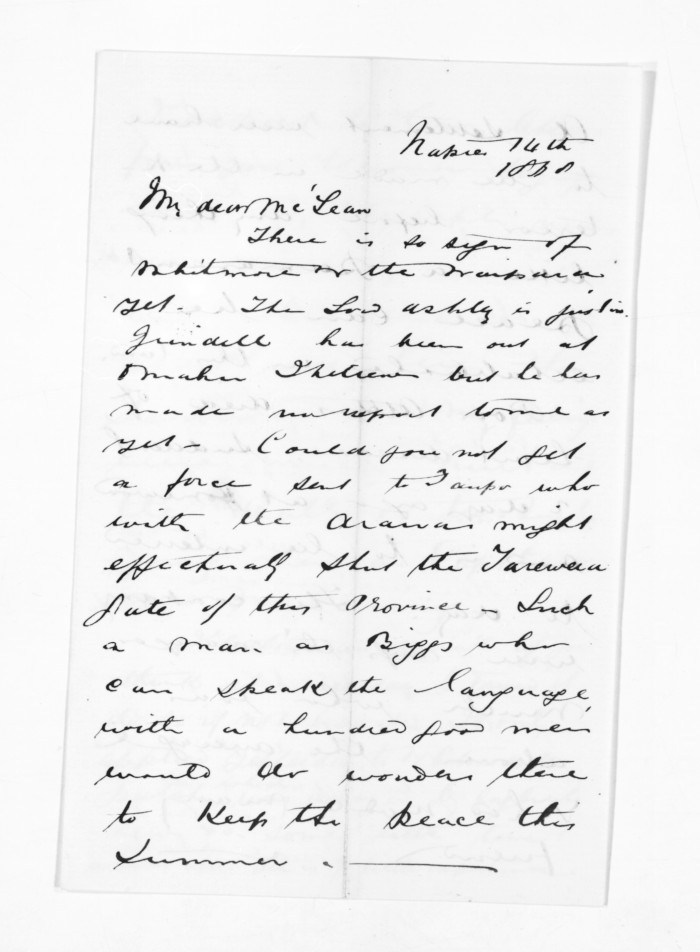 Napier 14th
1868
My dear McLean
There is no sign of
Whitmore or the Waipara
yet. The Lord Ashley is just in.
Grindell has been out at
Omahu I believe but he has
made no report to me as
yet - Could you not get
a force sent to Taupo who
with the Arawas might
effectually shut the Tarewera
gate of this Province - Such
a man as Biggs who
can speak the language,
with a hundred good men
would do wonders there
to keep the peace this
summer. -